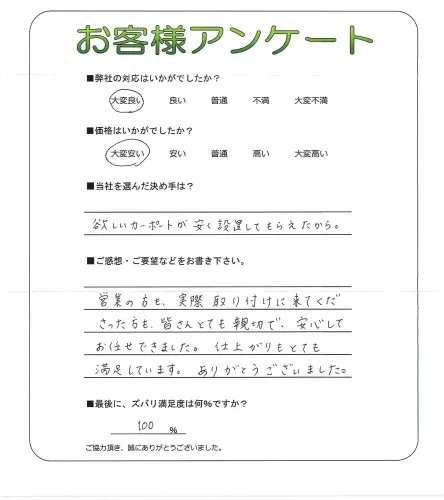 お客様アンケート
■弊社の対応はいかがでしたか？
大変良い 良い 普通 不満 大変不満
■価格はいかがでしたか？
大変安い 安い 普通 高い 大変高い
■当社を選んだ決め手は？
欲しいカーポートが安く設置してもらえたから。
■ご感想・ご要望などをお書き下さい。
営業の方も、実際取り付けに来てくだ
さった方も、皆さんとても親切で、安心して
お任せできました。仕上がりもとても
満足しています。ありがとうございました。
■最後に、ズバリ満足度は何％ですか？
100 ％
ご協力頂き、誠にありがとうございました。